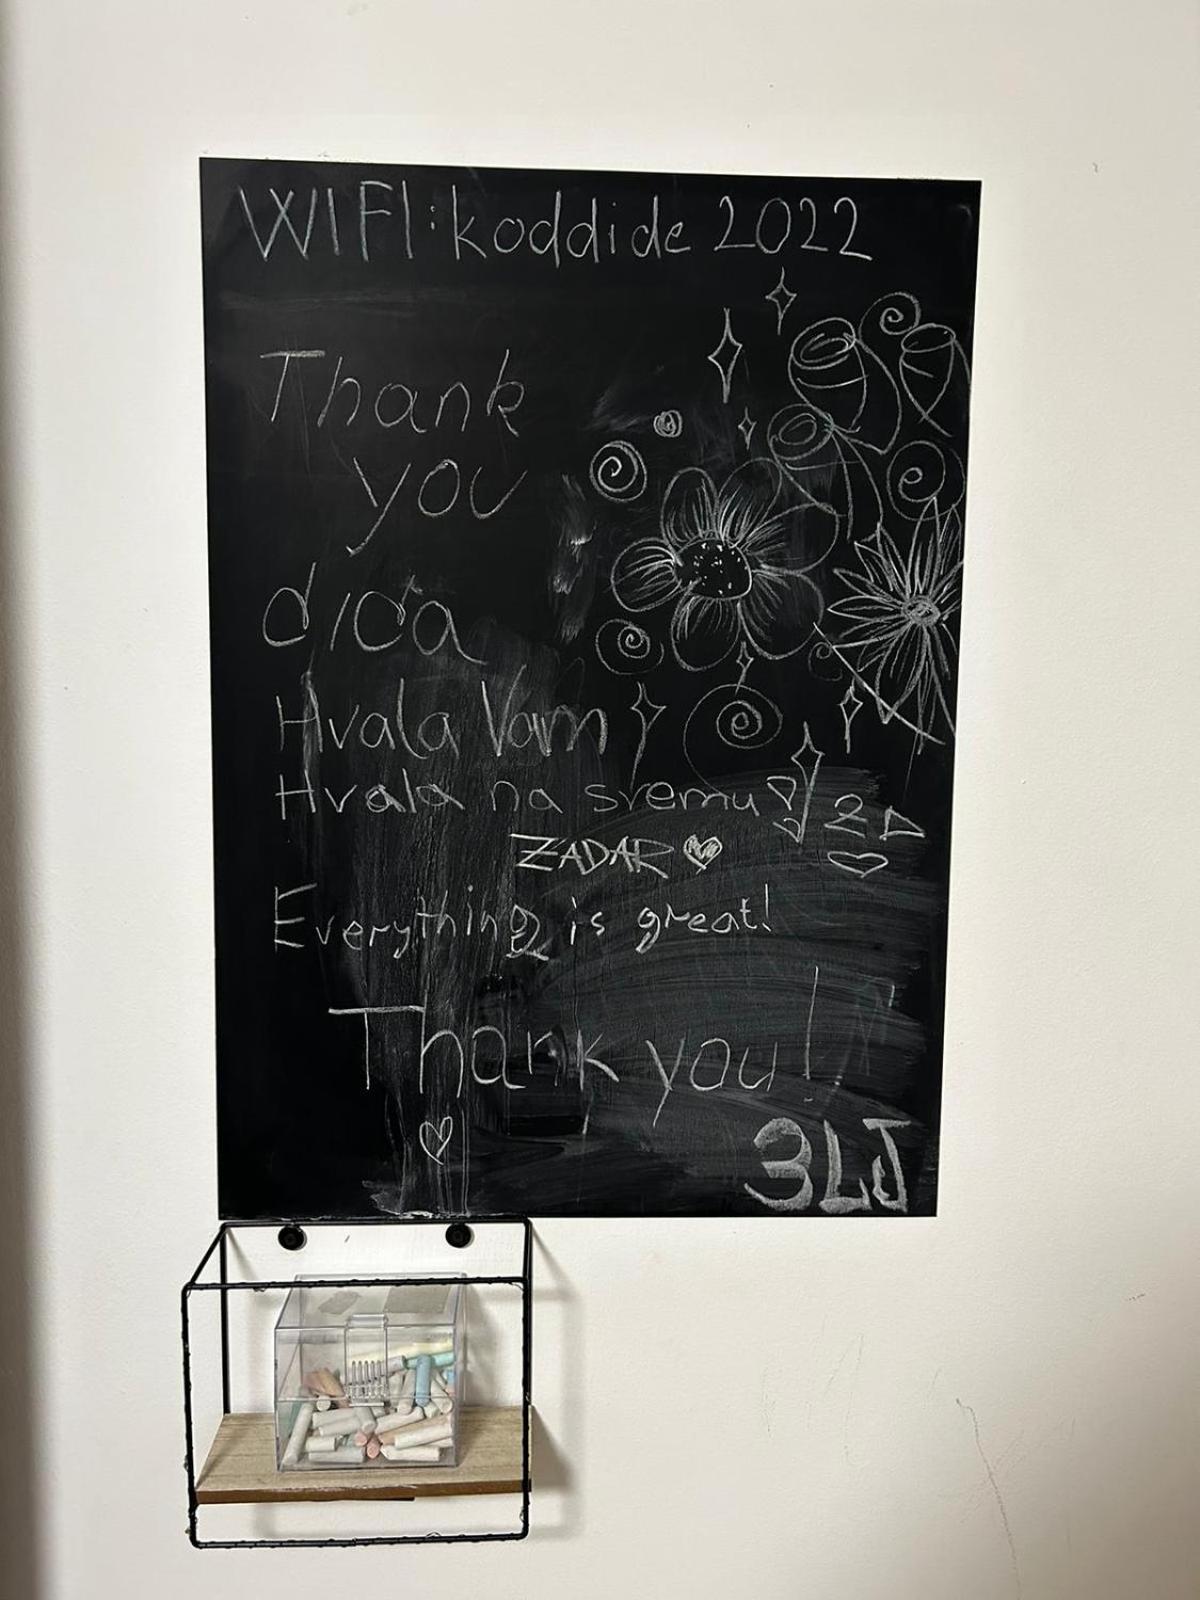 WIFI: koddide 2022
Thank
you
dida
Hvala Vam
Hvala na svemu
ZADAR
Everything is great!
Thank you!
3LJ